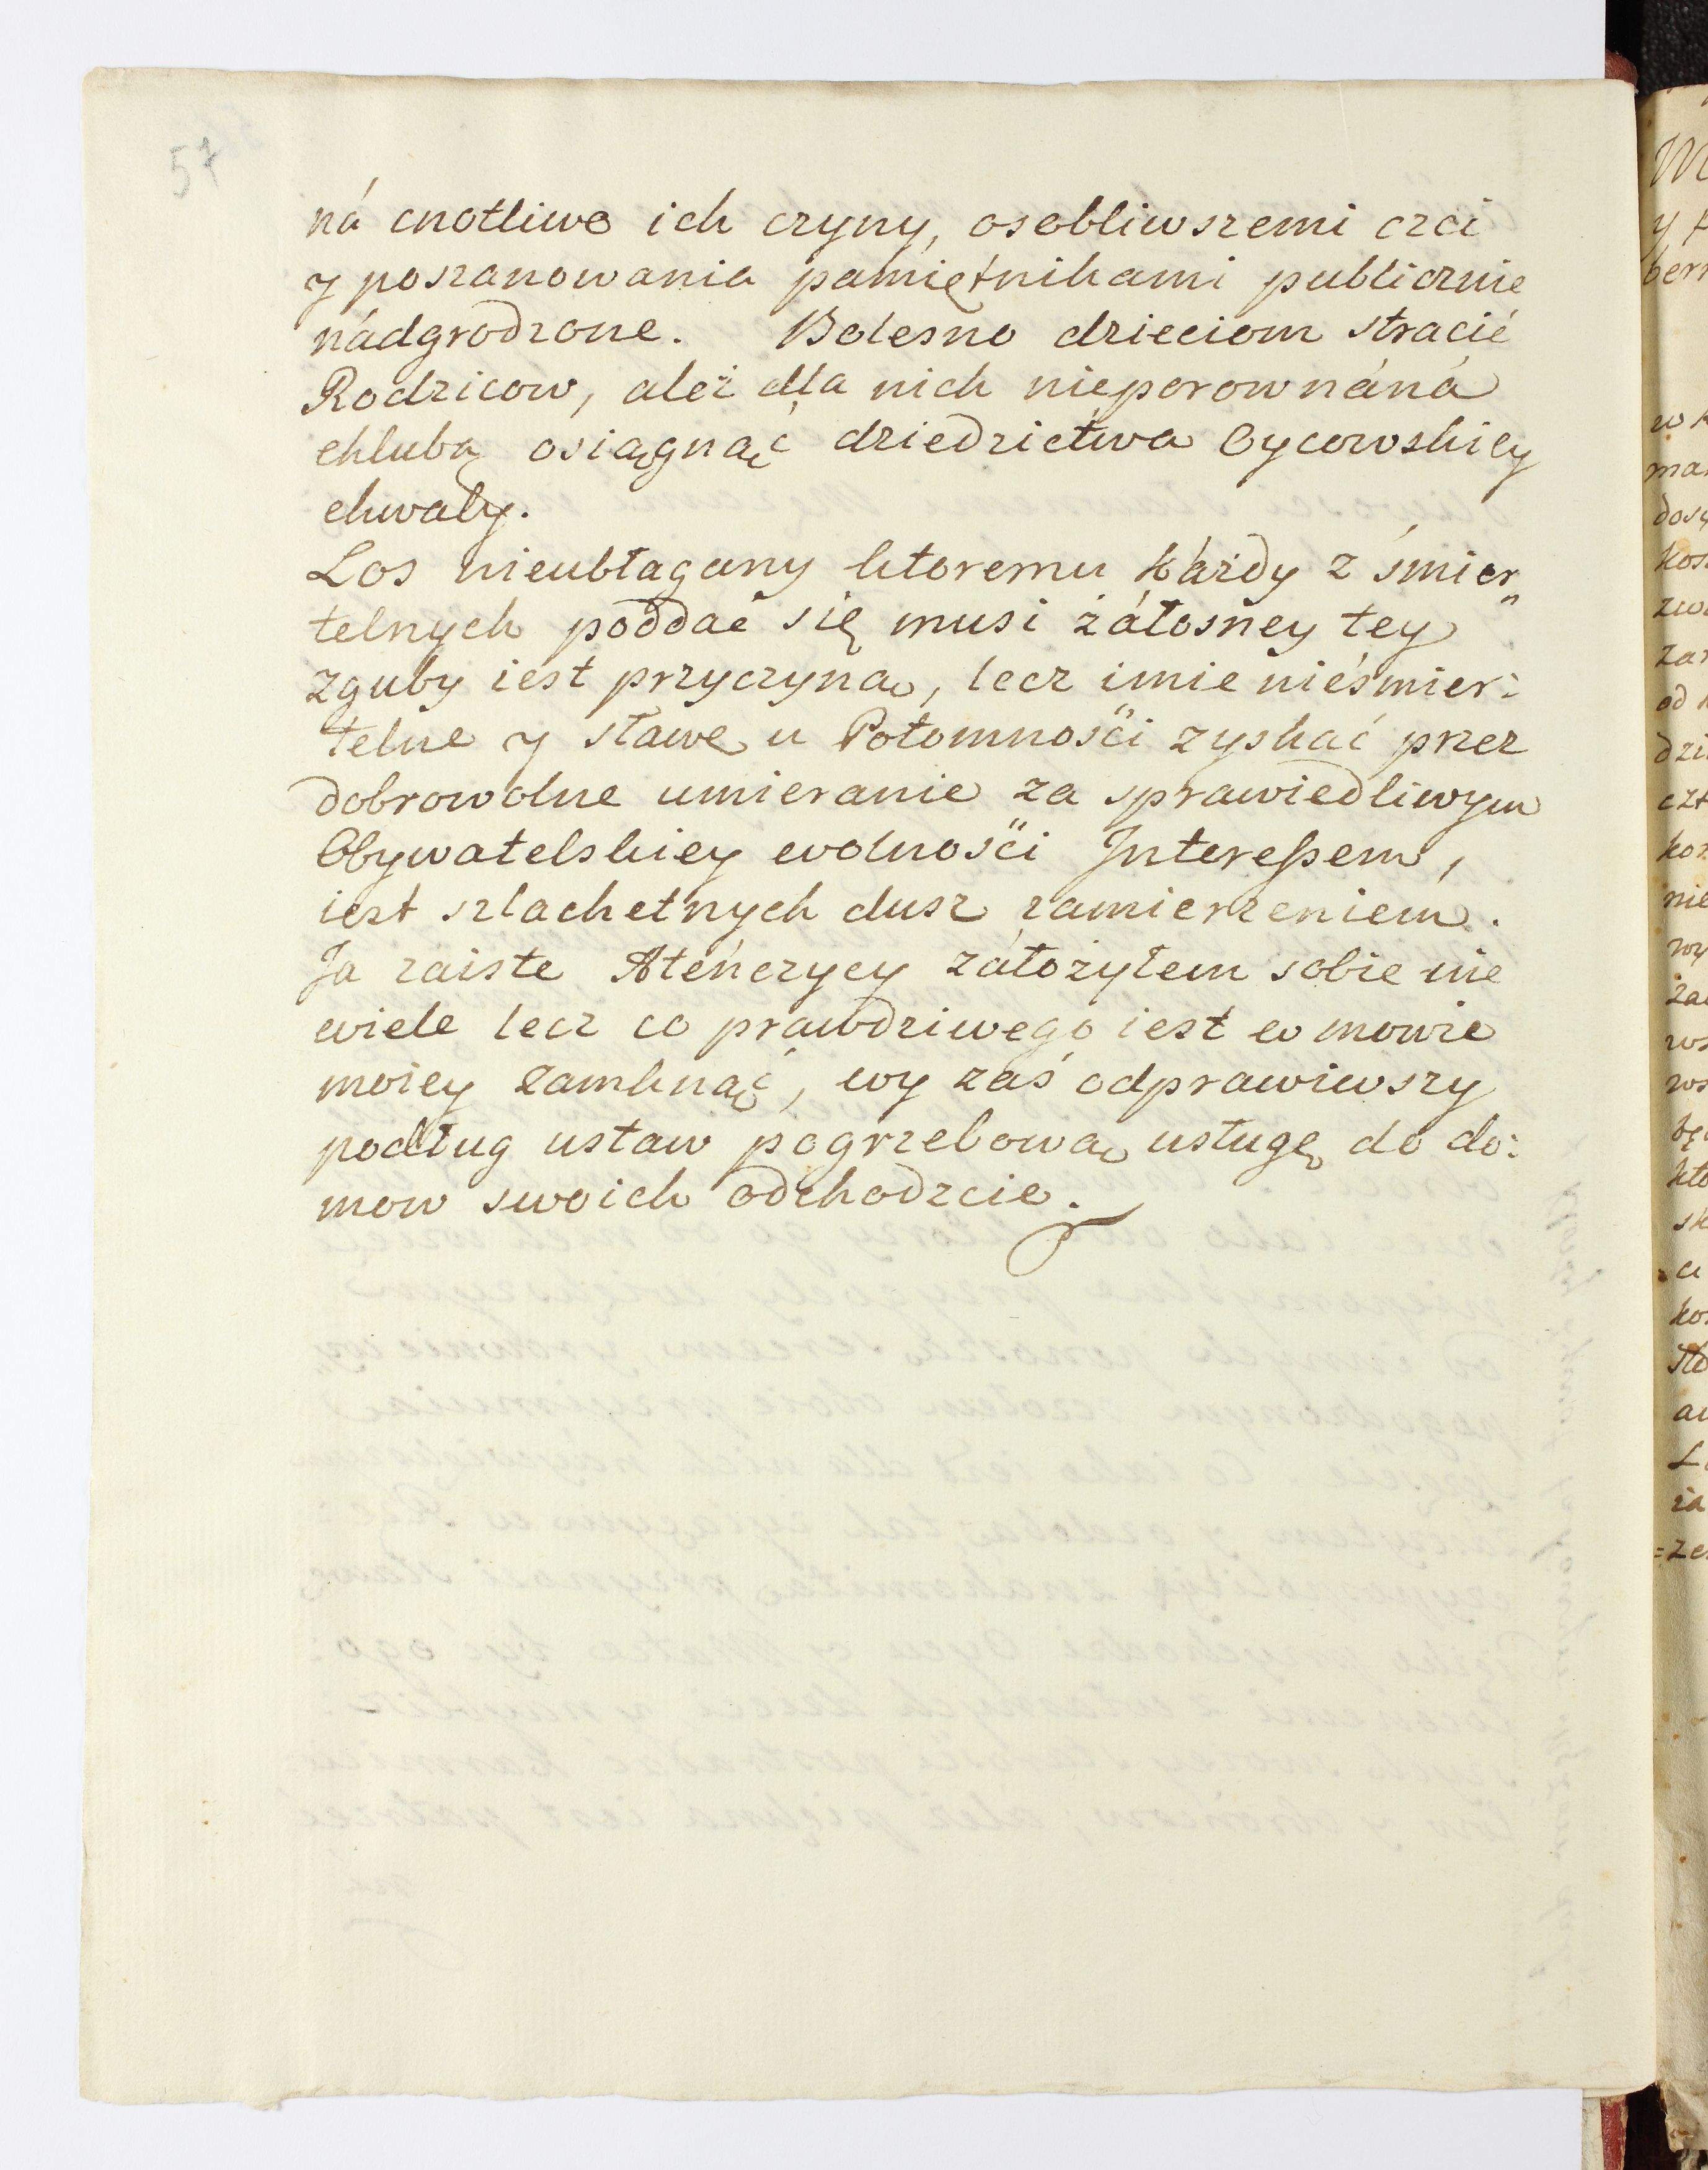 57
ná cnotliwe ich czyny, osobliwszemi czci
y poszanowania pamiętnikami publicznie
nádgrodzone. Bolesno dzieciom stracić
Rodzicow, aleź dla nich nieporownáná
chlubą osiągnąć dziedzictwa Oycowskiey
chwały.
Los nieubłagany ktoremu káżdy z śmier„
telnych poddać się musi żáłosney tey
zguby iest przyczyną, lecz imie nieśmier:
telne y sławę u Potomności zyskać przez
dobrowolne umieranie za sprawiedliwym
Obywatelskiey wolności Interessem,
iest szlachetnych dusz zamierzeniem.
Ja zaiste Ateńczycy záłożyłem sobie nie
wiele lecz co prawdziwego iest w mowie
moiey zamknąć, wy zaś odprawiwszy
podług ustaw pogrzebową usługę do do:
mow swoich odchodzcie.